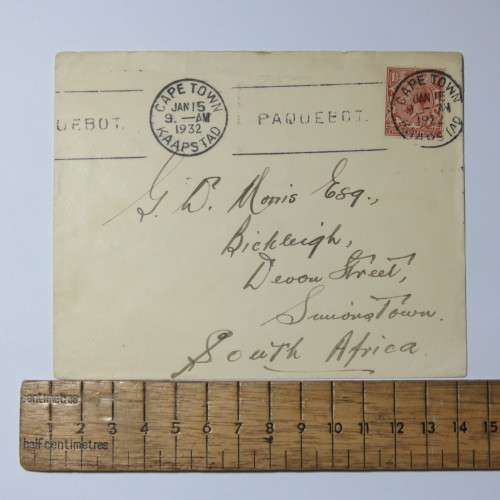 CAPE TOWN
JAN 15
9. - AM
1932
KAAPSTAD
UEBOT.
PAQUEBOT.
CAPE TOWN
JAN 15
9 - AM
1932
KAAPSTAD
G. D. Morris Esq.,
Bickleigh,
Devon Street,
Simonstown.
South Africa.
centimetres
1 2 3 4 5 6 7 8 9 10 11 12 13 14 15
half centimetres